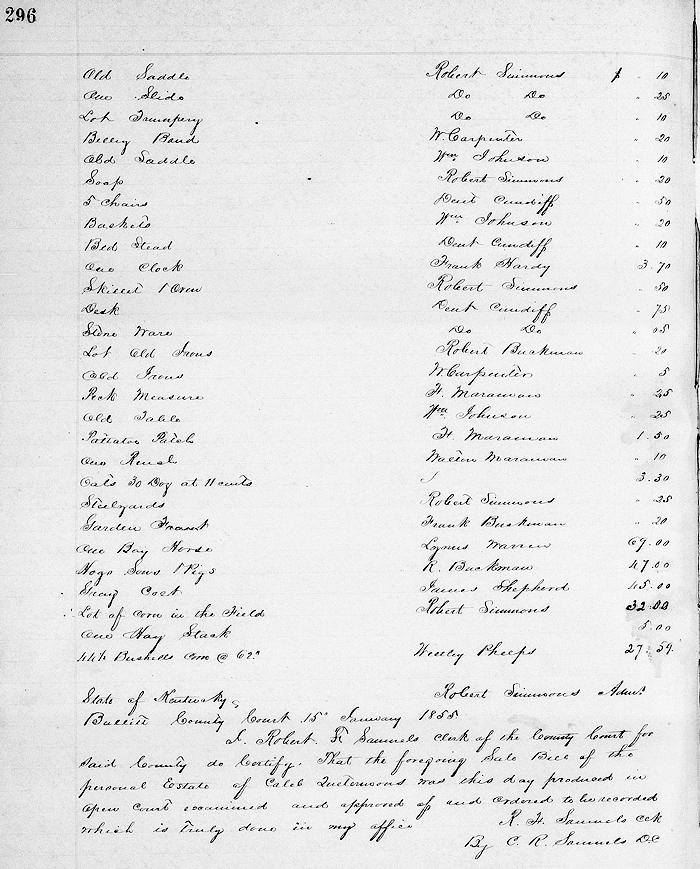 296
Old Saddle Robert Simmons $ " 10
One Slide Do Do " 25
Lot Trumpery Do Do " 10
Belley Band W. Carpenter " 20
Old Saddle Wm Johnson " 10
Soap Robert Simmons " 20
5 Chairs Dent Cundiff " 50
Baskets Wm Johnson " 20
Bed Stead Dent Cundiff " 10
One Clock Frank Hardy 3.70
Skillet 1 Oven Robert Simmons " 50
Desk Dent Cundiff " 75
Stone Ware Do Do " 05
Lot Old Irons Robert Buckman " 20
Old Irons W Carpenter " 5
Peck Measure H. Maraman " 25
Old Table Wm Johnson " 25
Pattatoe Patch H. Maraman 1.50
One Walton Maraman " 10
Oats 30 Doz at 11 cents 3.30
Steelyards Robert Simmons " 25
Garden Frank Buckman " 20
One Bay Horse Lynus Warren 69.00
Hogs Sows 1 Pigs R. Buckman 47.00
Stray Colt James Shepherd 45.00
Lot of Corn in the Field Robert Simmons 32.00
One Hay Stack 5.00
44½ Bushells Corn @ 62 Westley Phelps 27.59
Robert Simmons Admr
State of Kentucky
Bullitt County Court 15th January 1855
I. Robert. F. Samuels Clerk of the County Court for
Said County do Certify. That the foregoing Sale Bill of the
personal Estate of Caleb was this day produced in
open Court examined and approved of and ordered to be recorded
which is Truly done in my office R. F. Samuels Clk
By C. R. Samuels D.C